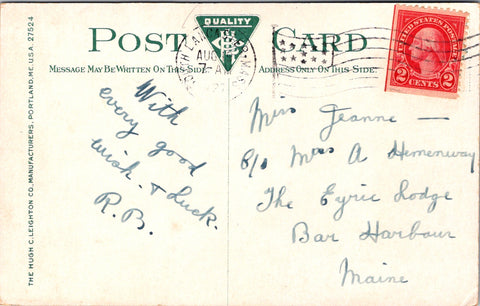 POST CARD
QUALITY
MESSAGE MAY BE WRITTEN ON THIS SIDE.
ADDRESS ONLY ON THIS SIDE.
AUG
7-AM
UNITED STATES POSTAGE
2 CENTS 2
With
every good
wish & luck.
R.B.
Miss Jeanne —
c/o Mrs A Hemenway
The Eyric Lodge
Bar Harbour
Maine
THE HUGH C. LEIGHTON CO. MANUFACTURERS, PORTLAND, ME. U.S.A. 27524